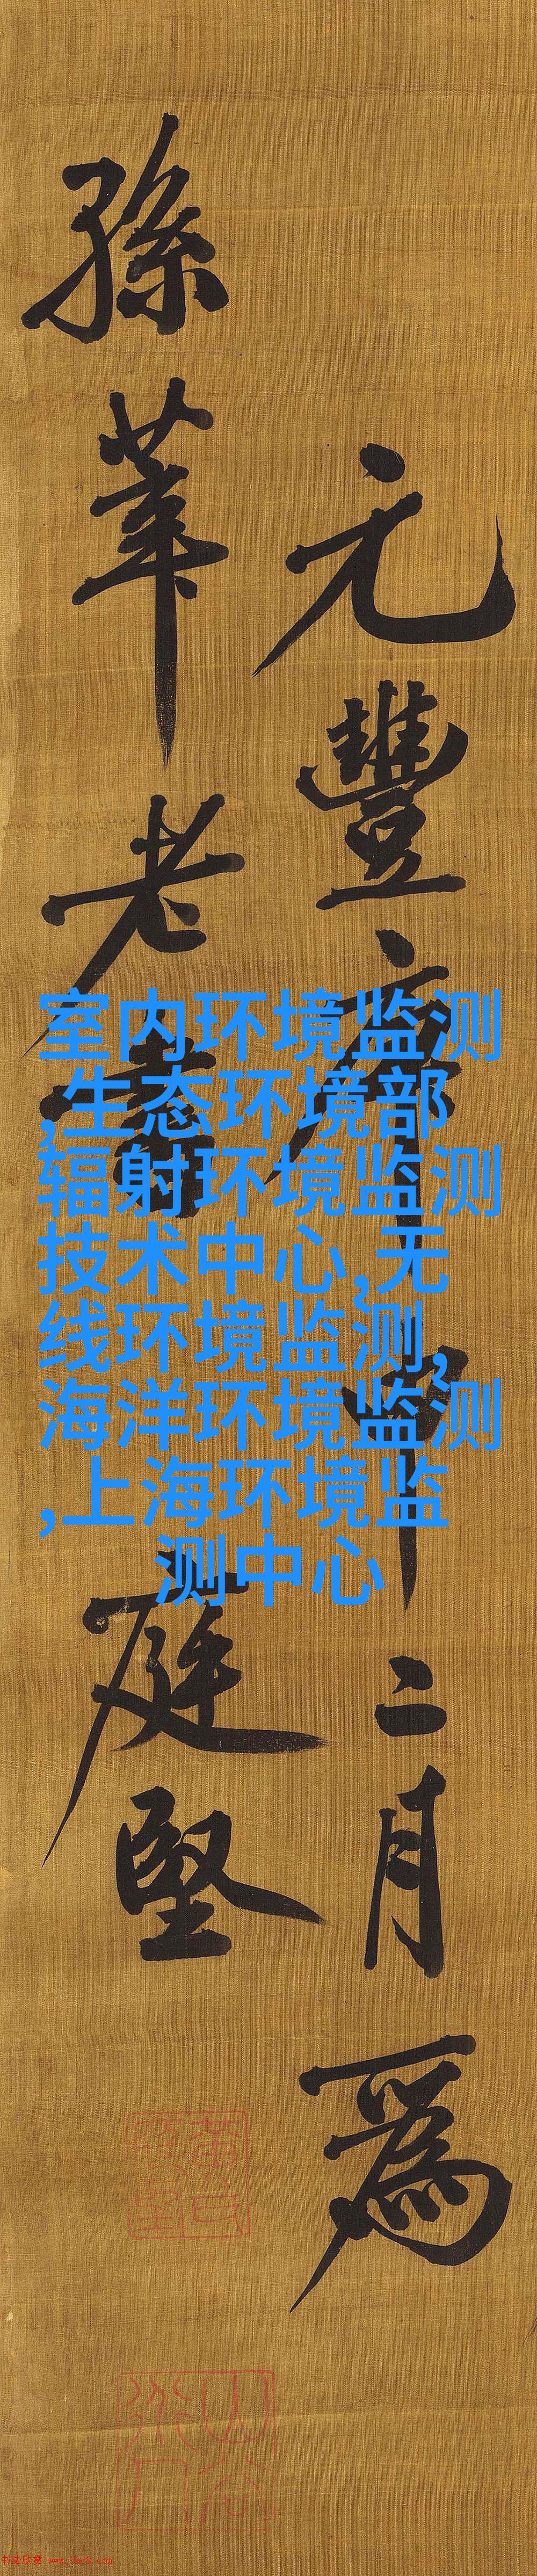 元豐庚申二月爲
孫莘老書
庭堅
室内环境监测
,生态环境部
辐射环境监测
技术中心,无
线环境监测,
海洋环境监测
,上海环境监
测中心